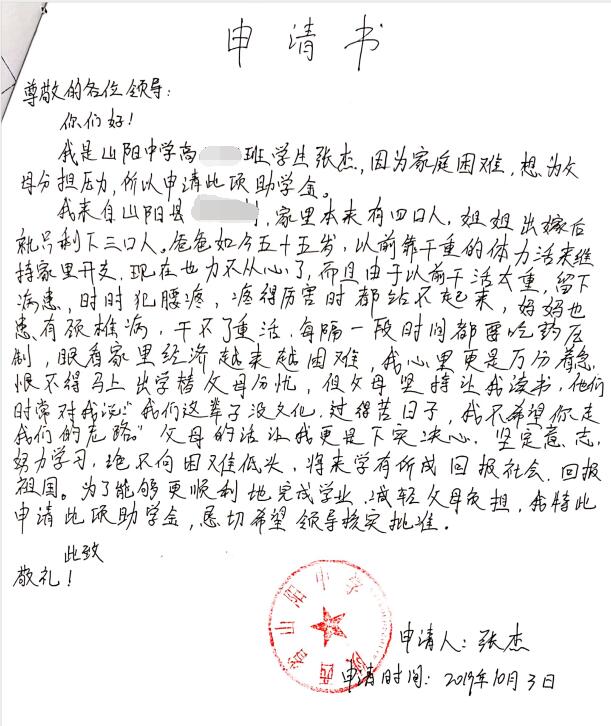 申请书
尊敬的各位领导：
你们好！
我是山阳中学高 班学生张杰，因为家庭困难，想为父
母分担压力，所以申请此项助学金。
我来自山阳县 村，家里本来有四口人，姐姐出嫁后
就只剩下三口人。爸爸如今五十五岁，以前靠干重的体力活来维
持家里开支，现在也力不从心了，而且由于以前干活太重，留下
病患，时时犯腰疼，疼得厉害时都站不起来，妈妈也
患有颈椎病，干不了重活，每隔一段时间都要吃药压
制，眼看家里经济越来越困难，我心里更是万分着急，
恨不得马上出学替父母分忧，但父母坚持让我读书，他们
时常对我说：“我们这辈子没文化，过得苦日子，我不希望你走
我们的老路。”父母的话让我更是下定决心，坚定意志，
努力学习，绝不向困难低头，将来学有所成回报社会，回报
祖国。为了能够更顺利地完成学业，减轻父母负担，我特此
申请此项助学金，恳切希望领导核实批准。
此致
敬礼！
陕西省山阳中学
申请人：张杰
申请时间：2019年10月3日